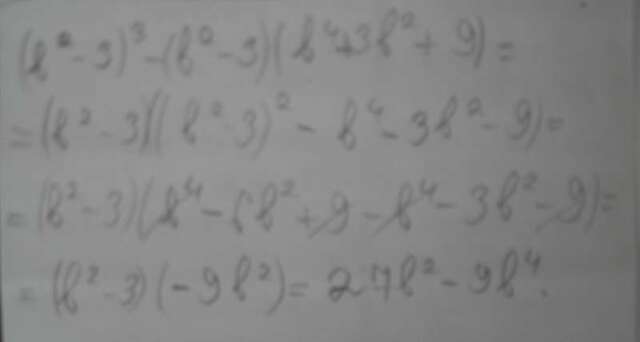 (b² - 3)³ - (b² - 3)(b⁴ + 3b² + 9) =
= (b² - 3)((b² - 3)² - b⁴ - 3b² - 9) =
= (b² - 3)(b⁴ - 6b² + 9 - b⁴ - 3b² - 9) =
= (b² - 3)(-9b²) = 27b² - 9b⁴.